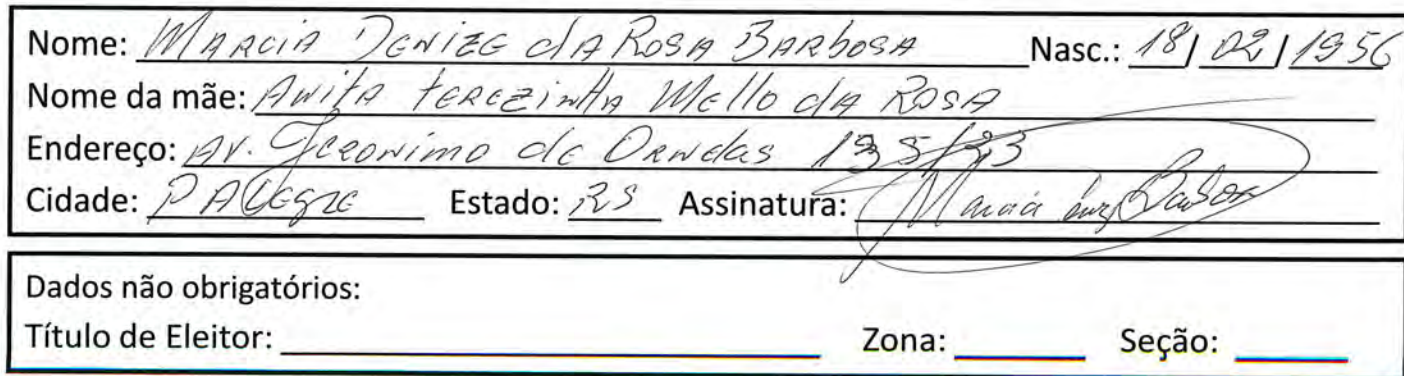 Nome: MARCIA DENIZE dA ROSA BARbOSA Nasc.: 18/02/1956
Nome da mãe: ANitA tEREZinHA Mello dA ROSA
Endereço: AV. Jeronimo de Ornelas
Cidade: P Alegre Estado: RS Assinatura: Marcia Barbosa
Dados não obrigatórios:
Título de Eleitor: Zona: Seção: